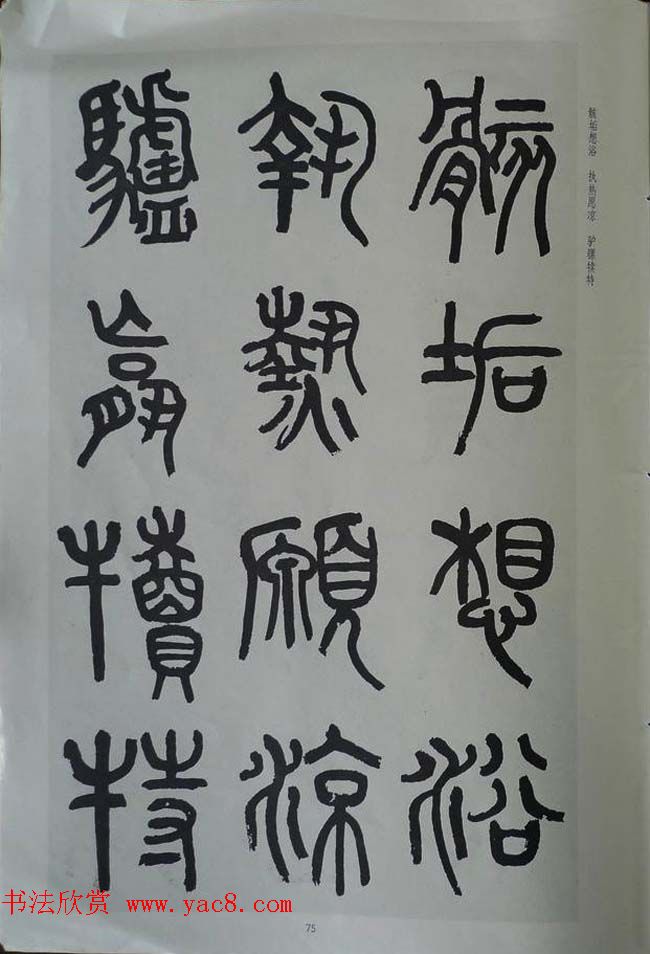 骸垢想浴 执热愿凉 驴骡犊特
骸垢想浴
執熱願涼
驢驘犢特
书法欣赏 www.yac8.com
75